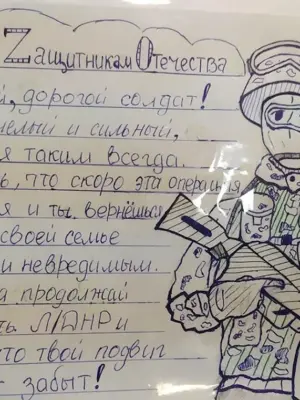 Zащитникам Отечества
, дорогой солдат!
и сильный,
я таким всегда.
, что скоро эта операция
я и ты вернёшься
своей семье
и невредимым.
продолжай
Л/ДНР и
твой подвиг
забыт!